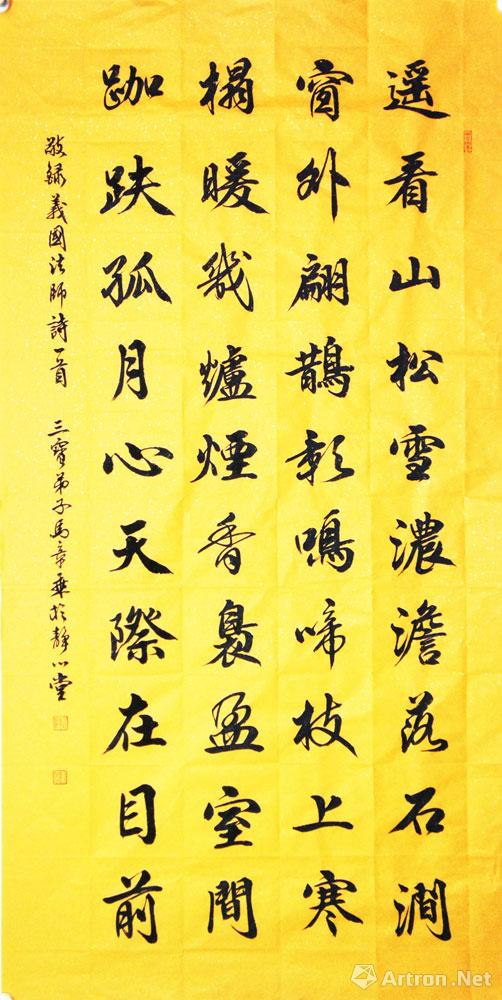 遥看山松雪濃澹落石澗
窗外翩鵲影鳴啼枝上寒
榻暖幾爐煙香裊盈室間
跏趺孤月心天際在目前
敬録義國法師詩一首 三寶弟子馬章乘於静心堂
Artron.Net